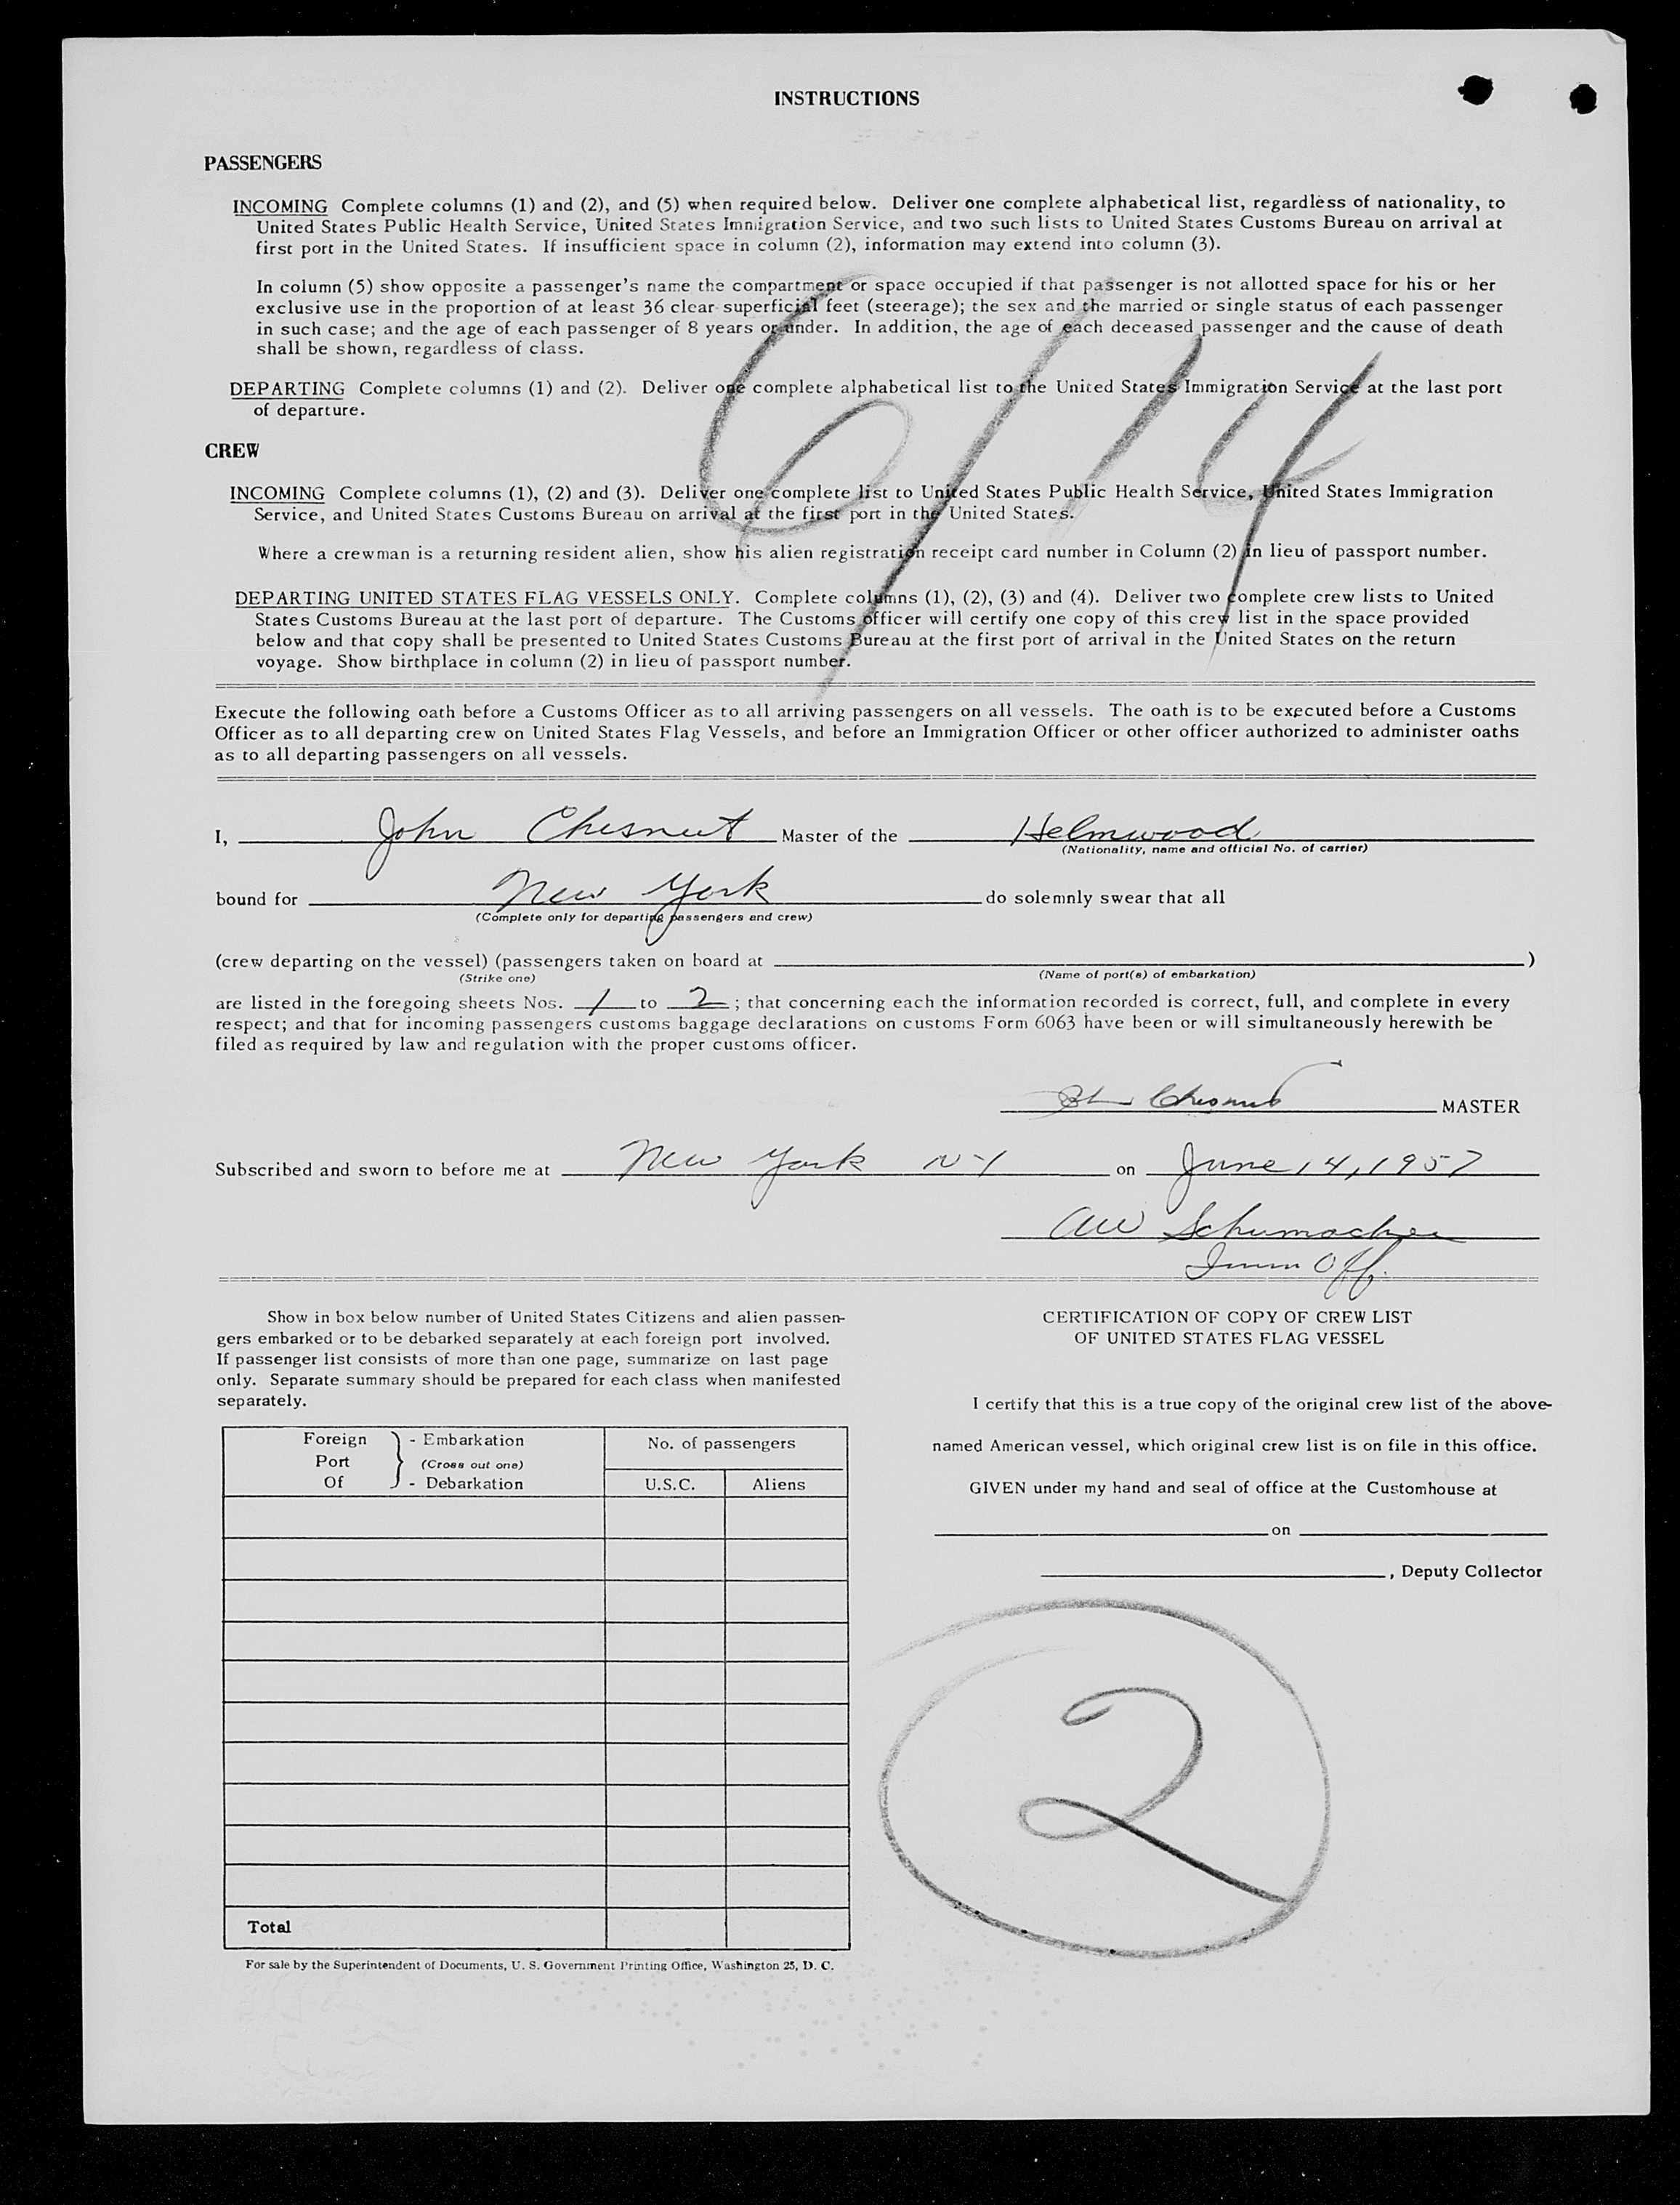 INSTRUCTIONS
PASSENGERS
INCOMING Complete columns (1) and (2), and (5) when required below. Deliver one complete alphabetical list, regardless of nationality, to
United States Public Health Service, United States Immigration Service, and two such lists to United States Customs Bureau on arrival at
first port in the United States. If insufficient space in column (2), information may extend into column (3).
In column (5) show opposite a passenger's name the compartment or space occupied if that passenger is not allotted space for his or her
exclusive use in the proportion of at least 36 clear superficial feet (steerage); the sex and the married or single status of each passenger
in such case; and the age of each passenger of 8 years or under. In addition, the age of each deceased passenger and the cause of death
shall be shown, regardless of class.
DEPARTING Complete columns (1) and (2). Deliver one complete alphabetical list to the United States Immigration Service at the last port
of departure.
6/14
CREW
INCOMING Complete columns (1), (2) and (3). Deliver one complete list to United States Public Health Service, United States Immigration
Service, and United States Customs Bureau on arrival at the first port in the United States.
Where a crewman is a returning resident alien, show his alien registration receipt card number in Column (2) in lieu of passport number.
DEPARTING UNITED STATES FLAG VESSELS ONLY. Complete columns (1), (2), (3) and (4). Deliver two complete crew lists to United
States Customs Bureau at the last port of departure. The Customs officer will certify one copy of this crew list in the space provided
below and that copy shall be presented to United States Customs Bureau at the first port of arrival in the United States on the return
voyage. Show birthplace in column (2) in lieu of passport number.
Execute the following oath before a Customs Officer as to all arriving passengers on all vessels. The oath is to be executed before a Customs
Officer as to all departing crew on United States Flag Vessels, and before an Immigration Officer or other officer authorized to administer oaths
as to all departing passengers on all vessels.
I, John Chesnut Master of the Helmwood
(Nationality, name and official No. of carrier)
bound for New York do solemnly swear that all
(Complete only for departing passengers and crew)
(crew departing on the vessel) (passengers taken on board at )
(Strike one) (Name of port(s) of embarkation)
are listed in the foregoing sheets Nos. 1 to 2; that concerning each the information recorded is correct, full, and complete in every
respect; and that for incoming passengers customs baggage declarations on customs Form 6063 have been or will simultaneously herewith be
filed as required by law and regulation with the proper customs officer.
Chesnut MASTER
Subscribed and sworn to before me at New York NY on June 14, 1957
Schumacher
Imm Off.
Show in box below number of United States Citizens and alien passen-
gers embarked or to be debarked separately at each foreign port involved.
If passenger list consists of more than one page, summarize on last page
only. Separate summary should be prepared for each class when manifested
separately.
Foreign Port Of } - Embarkation (Cross out one) - Debarkation
No. of passengers
U.S.C. Aliens
Total
For sale by the Superintendent of Documents, U. S. Government Printing Office, Washington 25, D. C.
CERTIFICATION OF COPY OF CREW LIST
OF UNITED STATES FLAG VESSEL
I certify that this is a true copy of the original crew list of the above-
named American vessel, which original crew list is on file in this office.
GIVEN under my hand and seal of office at the Customhouse at
on
, Deputy Collector
2